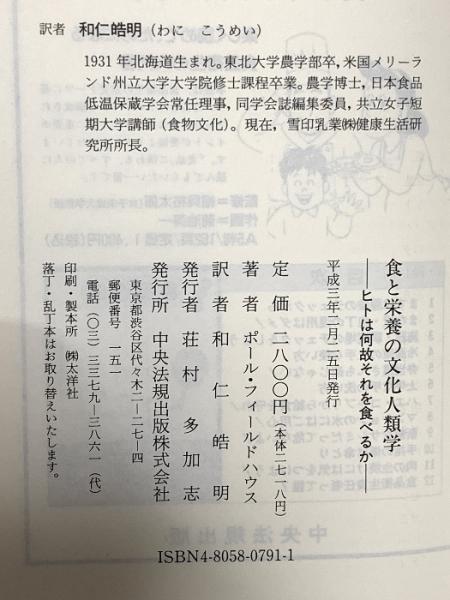 訳者 和仁皓明(わに こうめい)
1931年北海道生まれ。東北大学農学部卒,米国メリーラ
ンド州立大学大学院修士課程卒業。農学博士,日本食品
低温保蔵学会常任理事,同学会誌編集委員,共立女子短
期大学講師(食物文化)。現在,雪印乳業㈱健康生活研
究所所長。
食と栄養の文化人類学
──ヒトは何故それを食べるか──
平成三年二月二五日発行
定価 二八〇〇円(本体二七一八円)
著者 ポール・フィールドハウス
訳者 和仁皓明
発行者 荘村多加志
発行所 中央法規出版株式会社
東京都渋谷区代々木二―二七―四
郵便番号 一五一
電話(〇三)三三七九―三八六一(代)
印刷・製本所 ㈱太洋社
落丁・乱丁本はお取り替えいたします。
ISBN4-8058-0791-1
中央法規出版